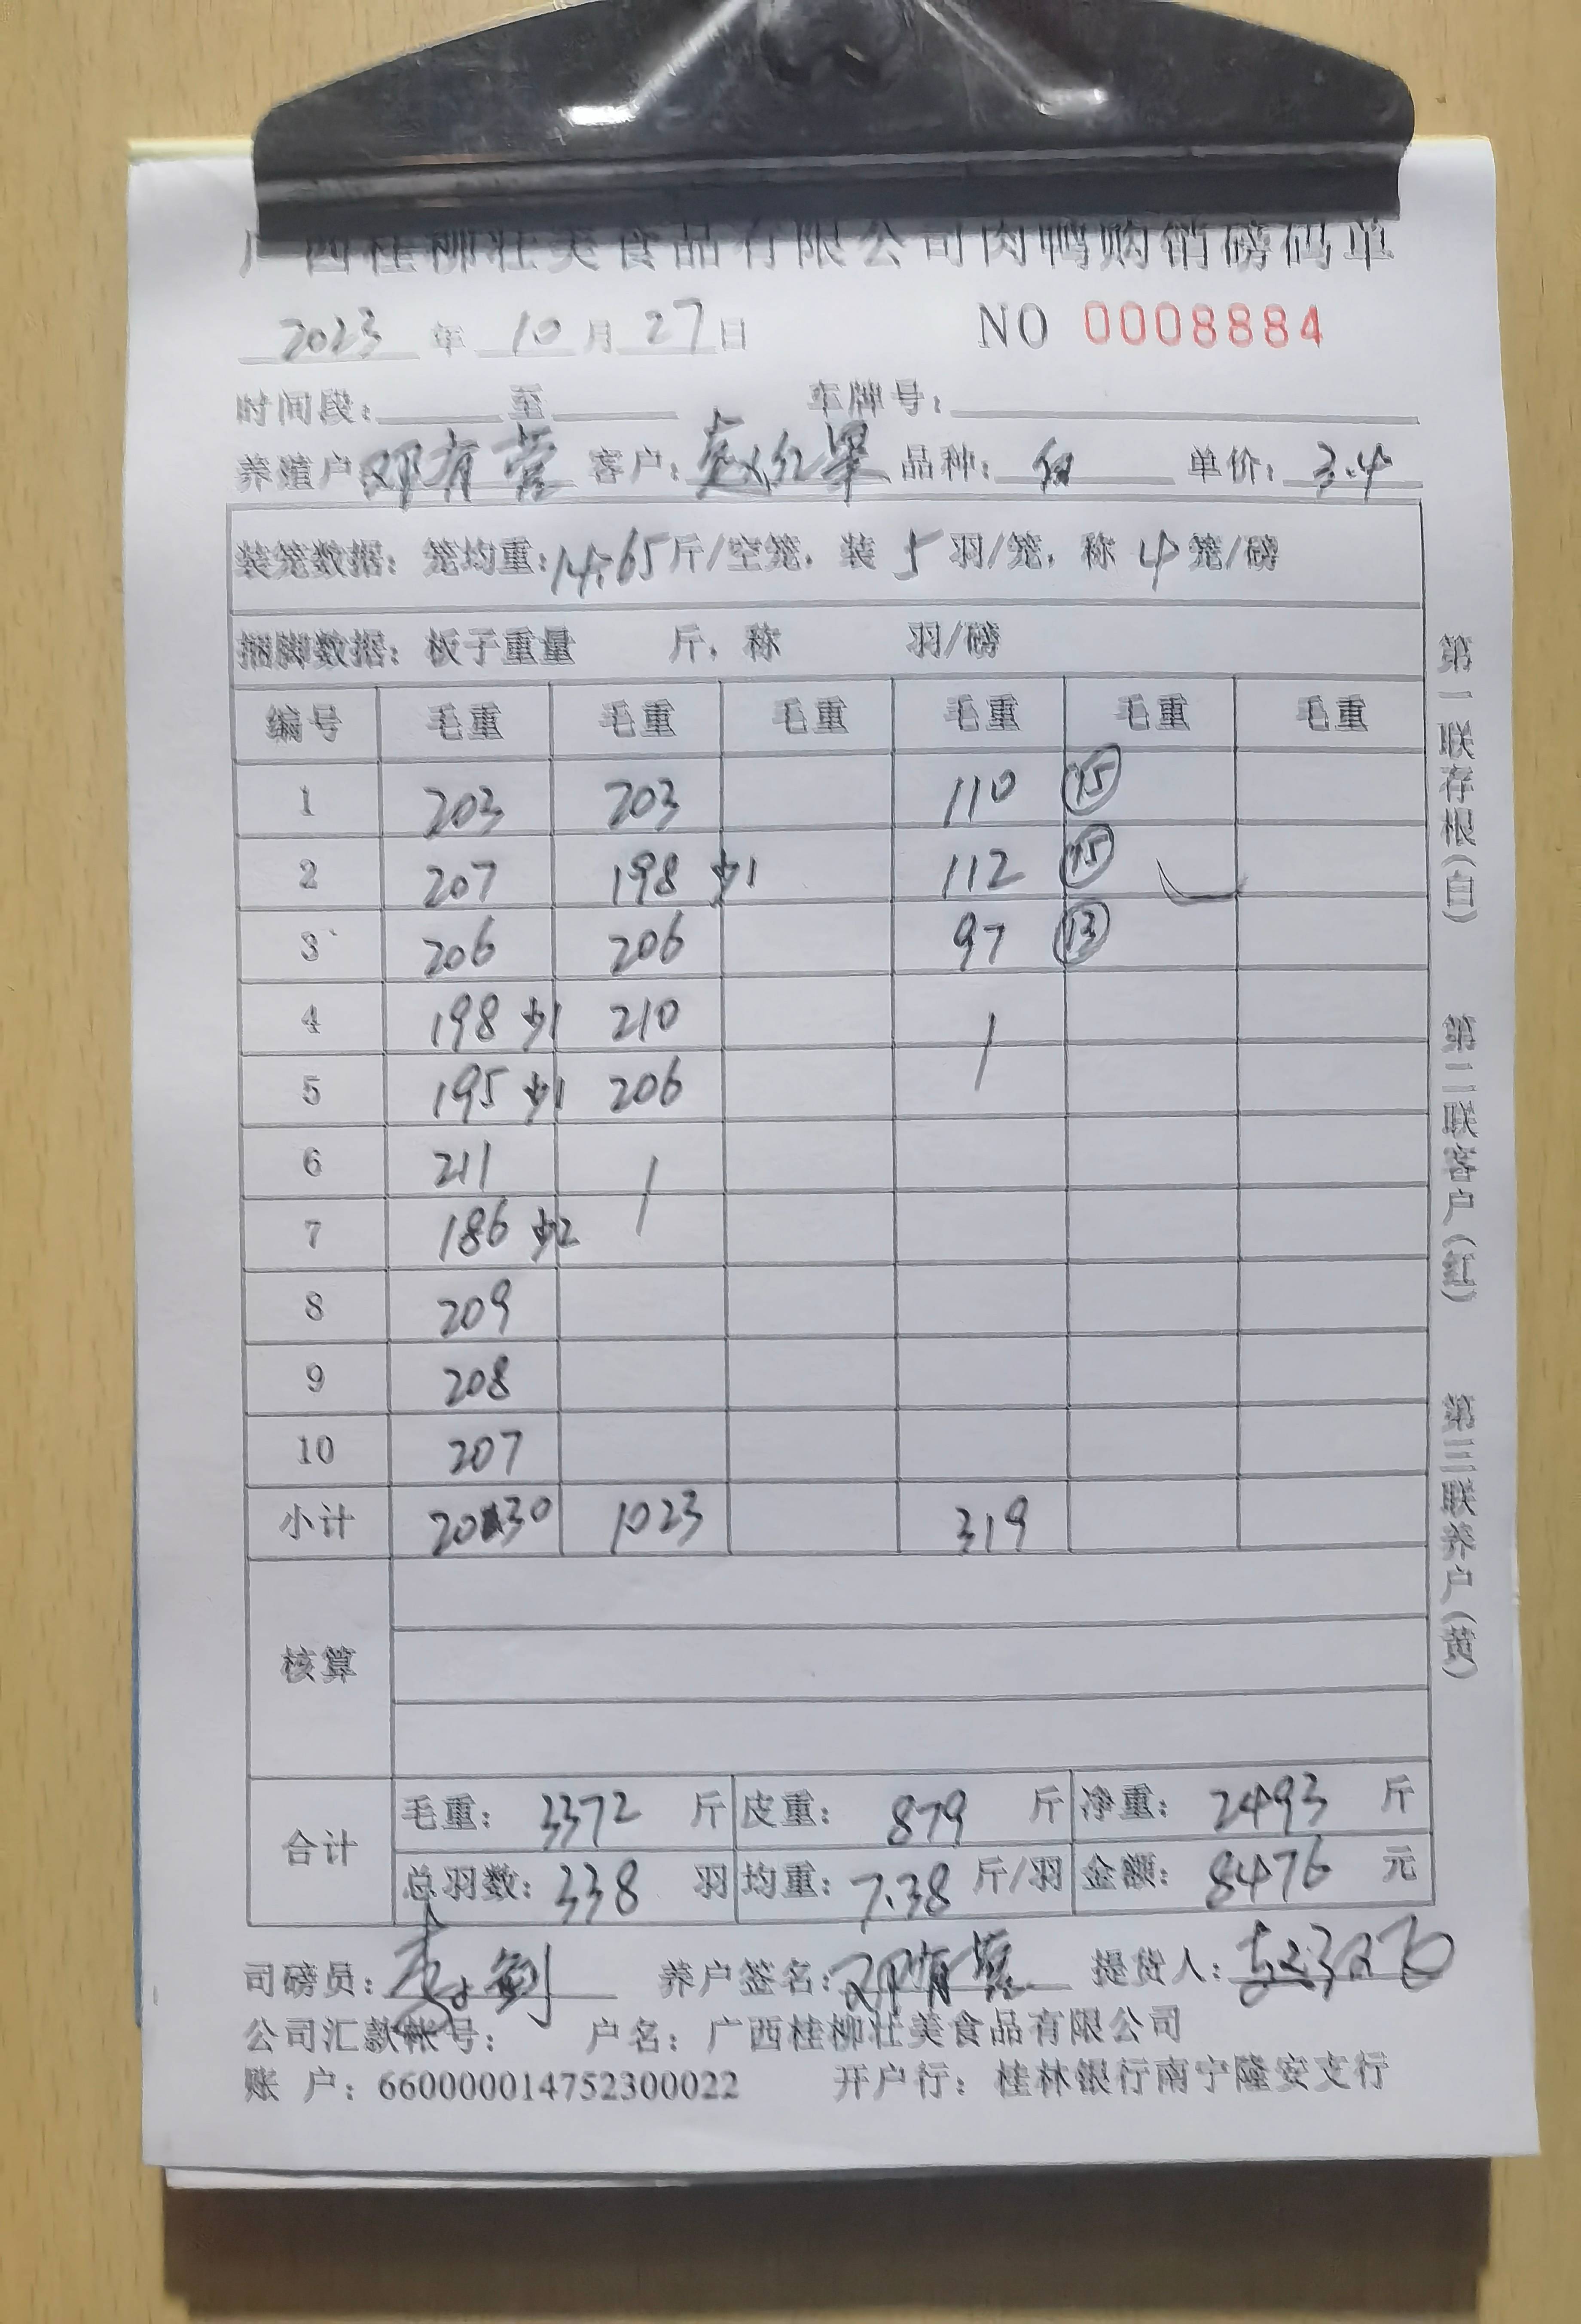 广西桂柳壮美食品有限公司肉鸭购销磅码单
2023 年 10 月 27 日 NO 0008884
时间段: 至 车牌号:
养殖户 邓有营 客户: 赵红果 品种: 单价: 3.4
装笼数据: 笼均重: 14.65 斤/空笼, 装 5 羽/笼, 称 4 笼/磅
捆脚数据: 板子重量 斤, 称 羽/磅
编号 毛重 毛重 毛重 毛重 毛重 毛重
1 203 203 110 15
2 207 198 少1 112 15
3 206 206 97 13
4 198 少1 210 /
5 195 少1 206
6 211 /
7 186 少2
8 209
9 208
10 207
小计 2030 1023 319
核算
合计
毛重: 3372 斤 皮重: 879 斤 净重: 2493 斤
总羽数: 338 羽 均重: 7.38 斤/羽 金额: 8476 元
司磅员: 养户签名: 邓有营 提货人:
公司汇款帐号: 户名: 广西桂柳壮美食品有限公司
账 户: 660000014752300022 开户行: 桂林银行南宁隆安支行
第一联存根(白)
第二联客户(红)
第三联养户(黄)